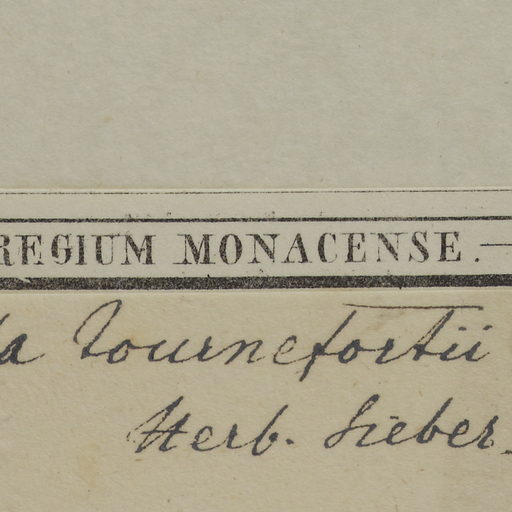 REGIUM MONACENSE.—
a Tournefortii
Herb. Sieber.